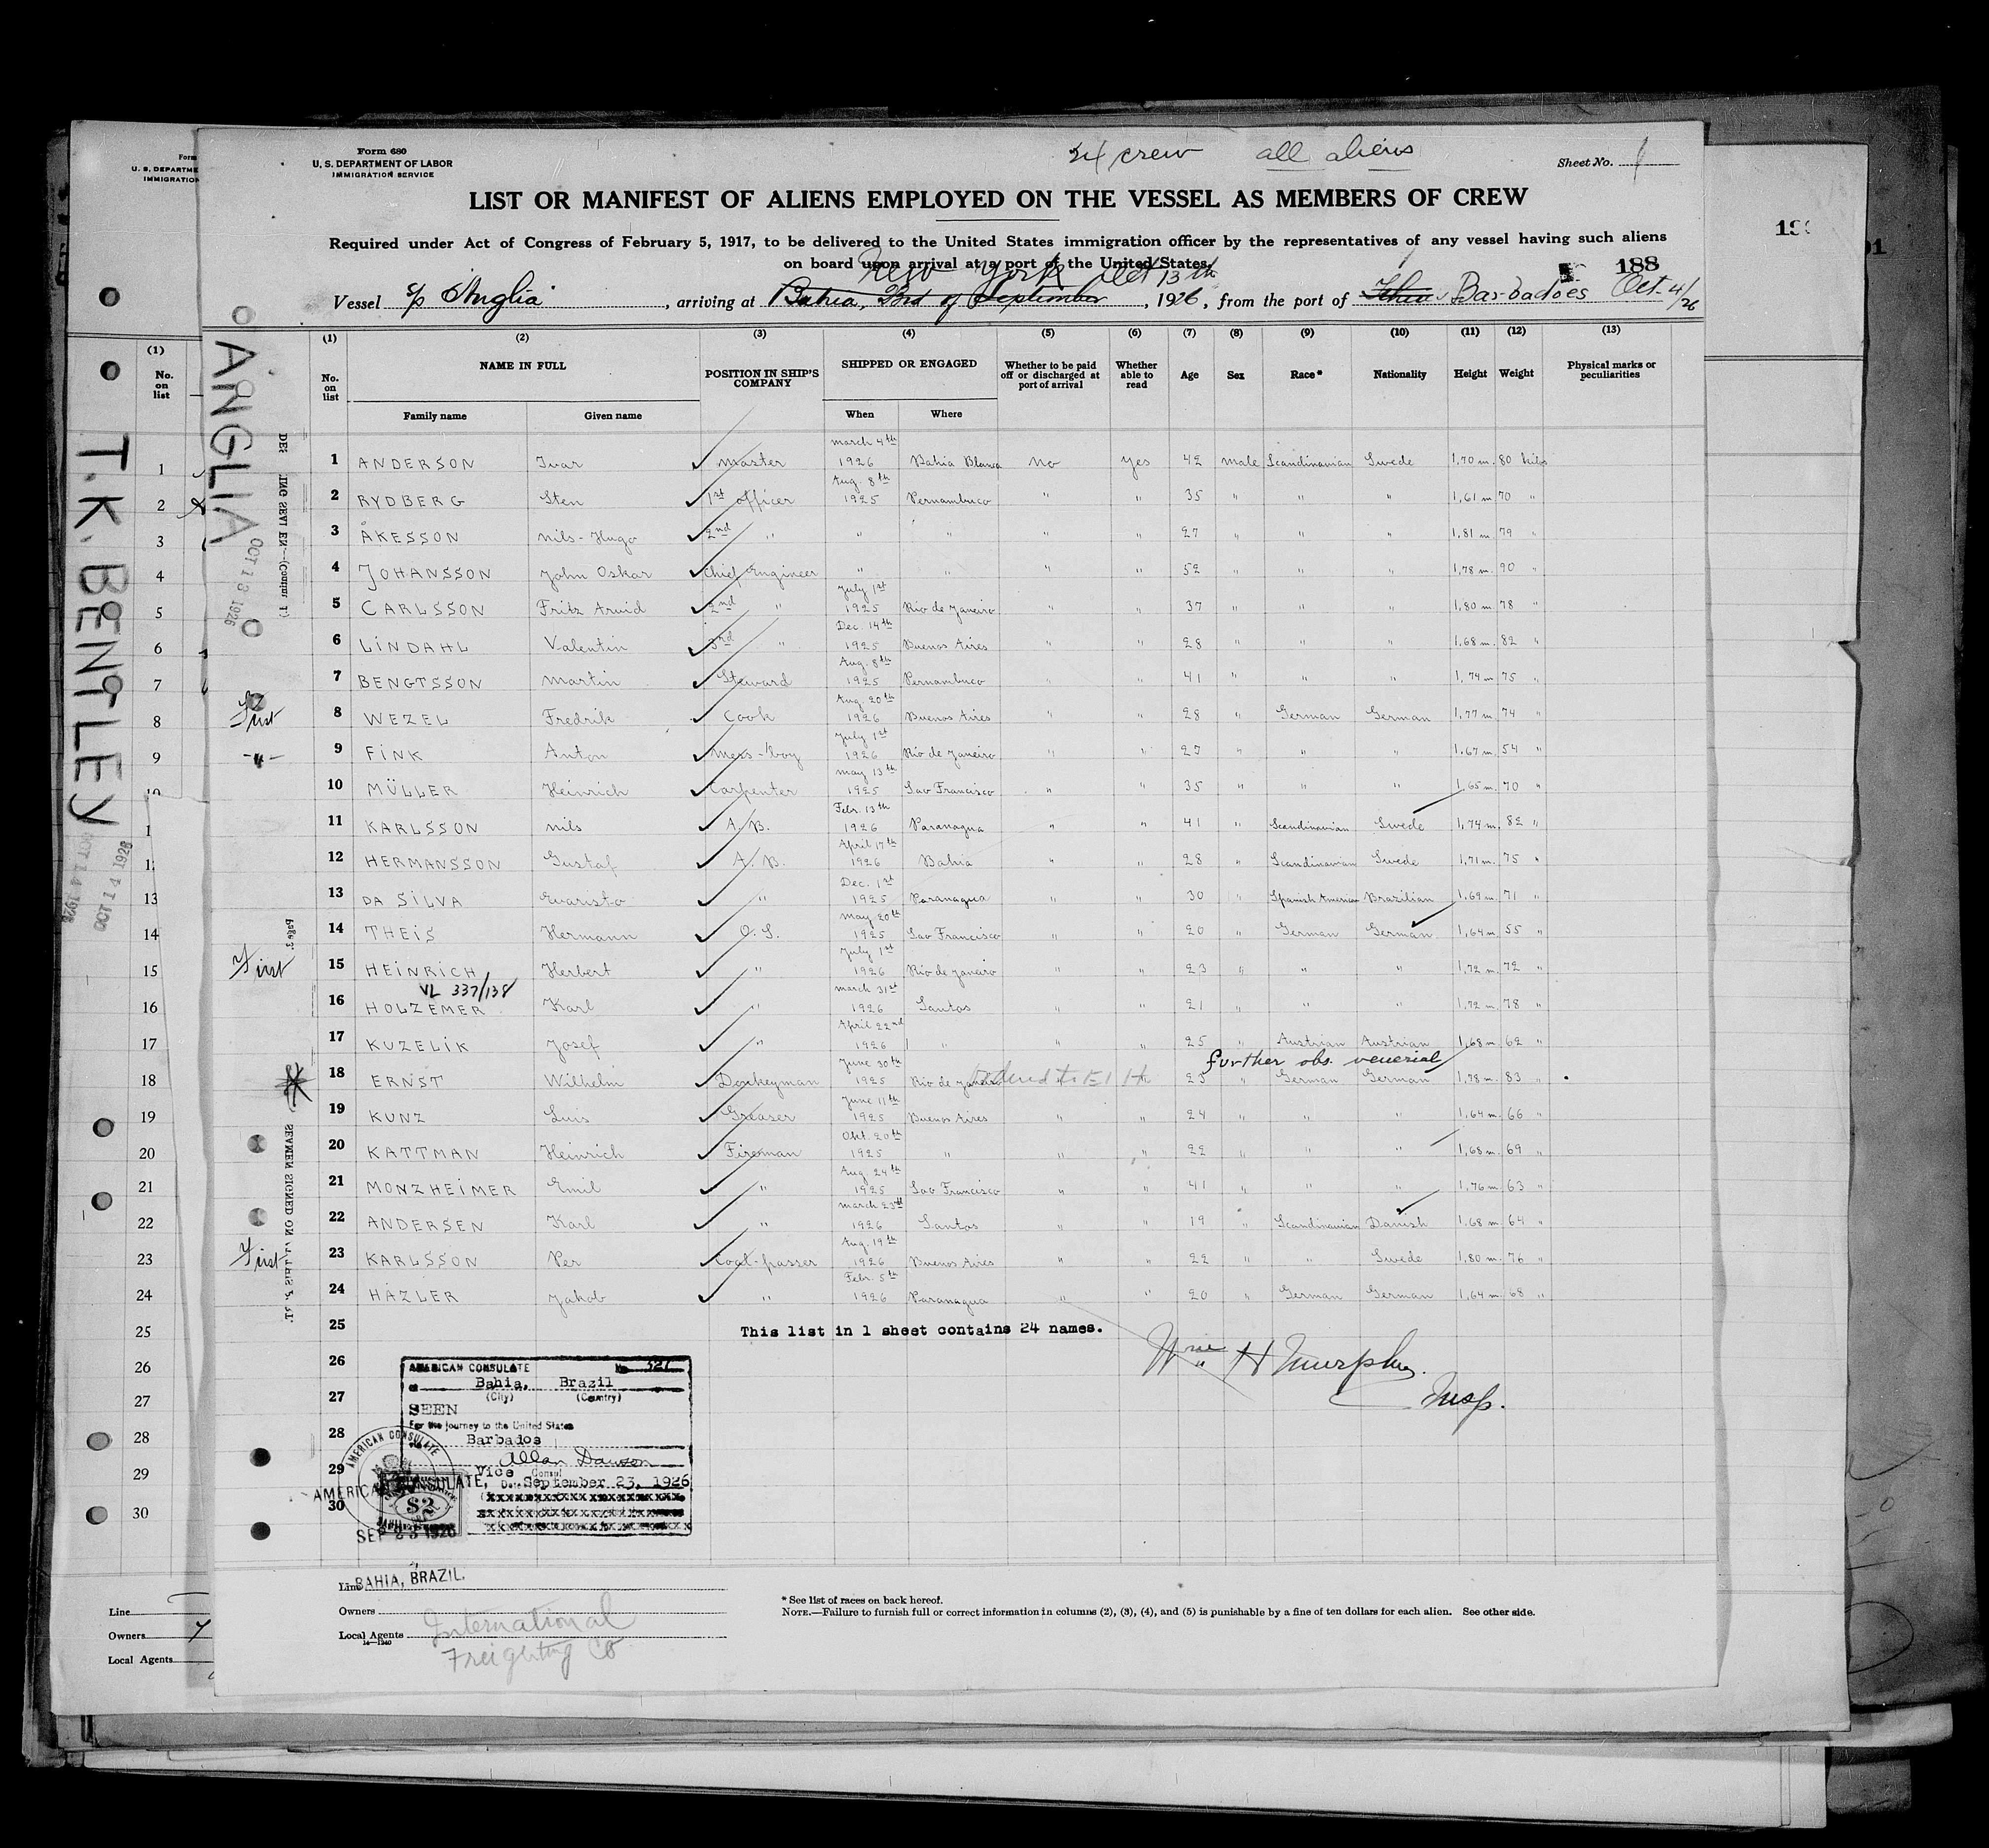 Form 680
U. S. DEPARTMENT OF LABOR
IMMIGRATION SERVICE
24 crew all aliens
Sheet No. 1
LIST OR MANIFEST OF ALIENS EMPLOYED ON THE VESSEL AS MEMBERS OF CREW
Required under Act of Congress of February 5, 1917, to be delivered to the United States immigration officer by the representatives of any vessel having such aliens
on board upon arrival at a port of the United States.
188
New York Oct 13th
Vessel S/S Anglia, arriving at Bahia, 23rd of September, 1926, from the port of Barbadoes Oct. 4/26
(1) (2) (3) (4) (5) (6) (7) (8) (9) (10) (11) (12) (13)
No. on list NAME IN FULL POSITION IN SHIP'S COMPANY SHIPPED OR ENGAGED Whether to be paid off or discharged at port of arrival Whether able to read Age Sex Race* Nationality Height Weight Physical marks or peculiarities
Family name Given name When Where
1 ANDERSON Ivar Master March 4th 1926 Bahia Blanca No Yes 42 Male Scandinavian Swede 1,70 m. 80 kilos
2 RYDBERG Sten 1st officer Aug. 8th 1925 Pernambuco " " 35 " " " 1,61 m 70 "
3 ÅKESSON Nils-Hugo 2nd " " " " " 27 " " " 1,81 m. 79 "
4 JOHANSSON John Oskar Chief Engineer " " " " 52 " " " 1,78 m. 90 "
5 CARLSSON Fritz Arvid 2nd " July 1st 1925 Rio de Janeiro " " 37 " " " 1,80 m. 78 "
6 LINDAHL Valentin 3rd " Dec. 14th 1925 Buenos Aires " " 28 " " " 1,68 m. 82 "
7 BENGTSSON Martin Steward Aug. 8th 1925 Pernambuco " " 41 " " " 1,74 m. 75 "
First 8 WEZEL Fredrik Cook Aug. 20th 1926 Buenos Aires " " 28 " German German 1,77 m. 74 "
-"- 9 FINK Anton Mess-boy July 1st 1926 Rio de Janeiro " " 27 " " " 1,67 m. 54 "
10 MÜLLER Heinrich Carpenter May 13th 1925 Sao Francisco " " 35 " " " 1,65 m. 70 "
11 KARLSSON Nils A. B. Febr. 13th 1926 Paranagua " " 41 " Scandinavian Swede 1,74 m. 82 "
12 HERMANSSON Gustaf A. B. April 17th 1926 Bahia " " 28 " Scandinavian Swede 1,71 m. 75 "
13 DA SILVA Evaristo " Dec. 1st 1925 Paranagua " " 30 " Spanish American Brazilian 1,69 m. 71 "
14 THEIS Hermann O. S. May 20th 1925 Sao Francisco " " 20 " German German 1,64 m. 55 "
First 15 HEINRICH Herbert " July 1st 1926 Rio de Janeiro " " 23 " " " 1,72 m. 72 "
VL 337/138
16 HOLZEMER Karl " March 31st 1926 Santos " " 21 " " " 1,72 m. 78 "
17 KUZELIK Josef " April 22nd 1926 " " " 25 " Austrian Austrian 1,68 m. 62 "
further obs. venerial
18 ERNST Wilhelm Donkeyman June 30th 1925 Rio de Janeiro 23 " German German 1,78 m. 83 "
19 KUNZ Luis Greaser June 11th 1925 Buenos Aires " " 24 " " " 1,64 m. 66 "
20 KATTMAN Heinrich Fireman Okt. 20th 1925 " " " 22 " " " 1,68 m. 69 "
21 MONZHEIMER Emil " Aug. 24th 1925 Sao Francisco " " 41 " " " 1,76 m. 63 "
22 ANDERSEN Karl " March 23rd 1926 Santos " " 19 " Scandinavian Danish 1,68 m. 64 "
First 23 KARLSSON Per Coal-passer Aug. 19th 1926 Buenos Aires " " 22 " " Swede 1,80 m. 76 "
24 HÄZLER Jakob " Febr. 5th 1926 Paranagua " " 20 " German German 1,64 m. 68 "
25
This list in 1 sheet contains 24 names.
26
27
28
29
30
Wm H Murphy
Insp.
AMERICAN CONSULATE No 321
Bahia, Brazil
(City) (Country)
SEEN
For the journey to the United States
Barbados
Allan Dawson
Vice Consul
Date September 23, 1926
AMERICAN CONSULATE
AMERICAN CONSULATE,
$2
SEP 23 1926
BAHIA, BRAZIL.
Line
Owners
Local Agents
14—1240
International
Freighting Co
* See list of races on back hereof.
NOTE.—Failure to furnish full or correct information in columns (2), (3), (4), and (5) is punishable by a fine of ten dollars for each alien. See other side.
ANGLIA
OCT 13 1926
SEAMEN SIGNED ON
T. K. BENTLEY
OCT 14 1926
OCT 14 1926
Form
U. S. DEPARTME
IMMIGRATION
(1)
No. on list
1
2
3
4
5
6
7
8
9
13
14
15
16
17
18
19
20
21
22
23
24
25
26
27
28
29
30
Line
Owners
Local Agents